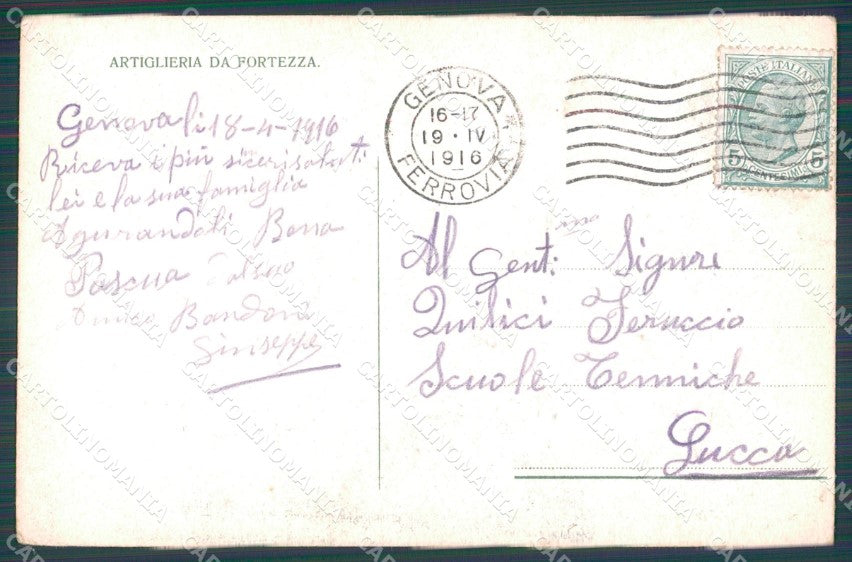 ARTIGLIERIA DA FORTEZZA.
Genova li 18-4-1916
Riceva i più siceri saluti
lei e la sua famiglia
Agurandoli Bona
Pascua
Amico Bandoni
Giuseppe
GENOVA
16-17
19 · IV
1916
FERROVIA
POSTE ITALIANE
5 CENTESIMI 5
Al Gent: Signore
Quilici Feruccio
Scuole Termiche
Lucca